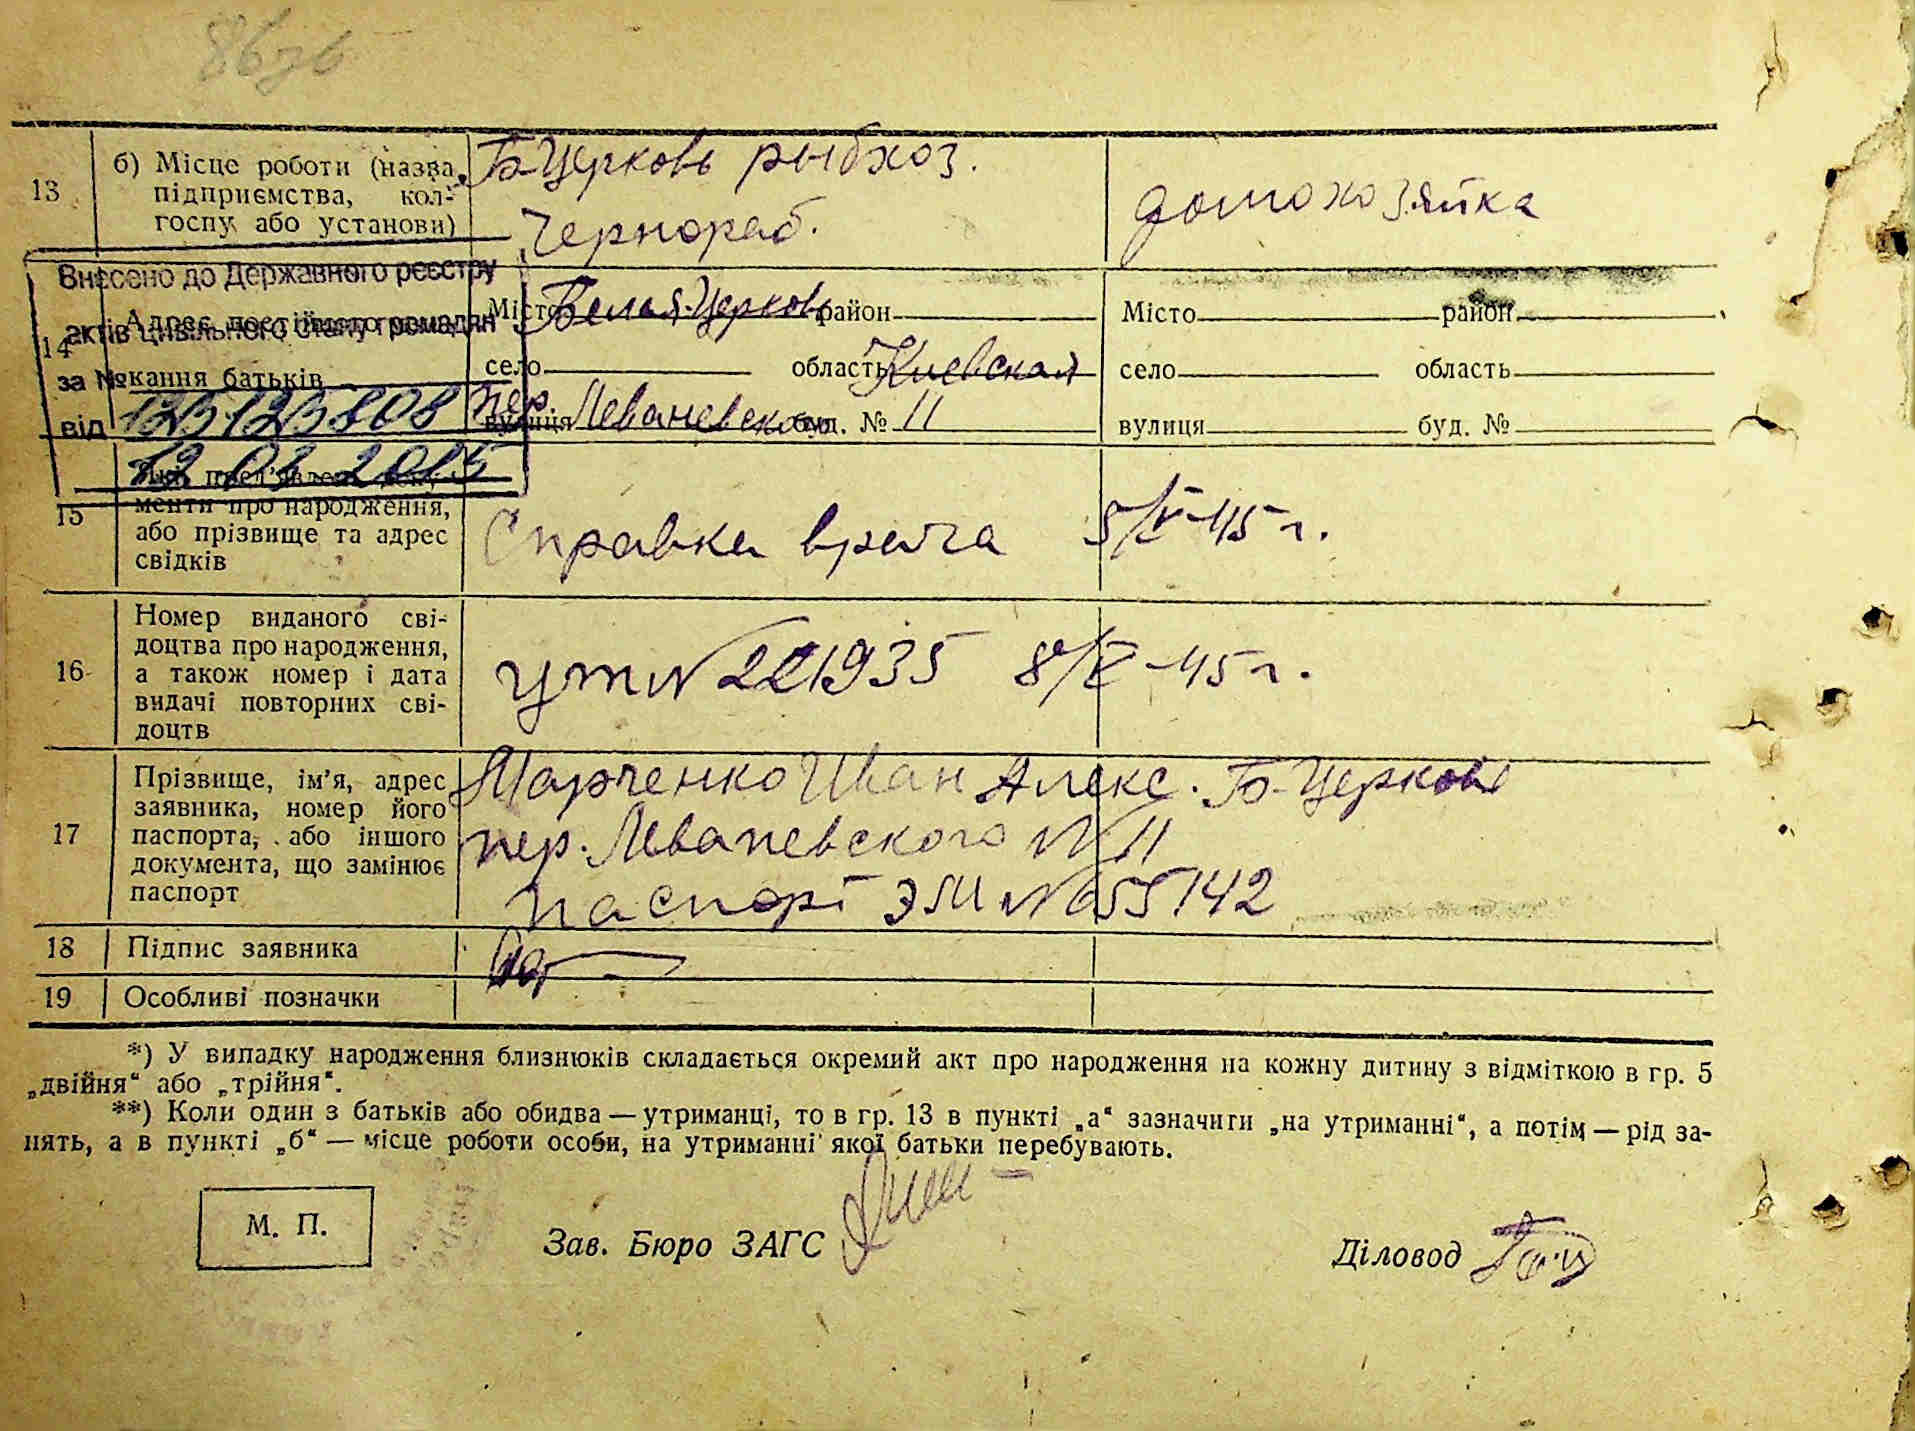 13
б) Місце роботи (назва підприємства, кол-
госпу або установи)
Б-Церковь рыбхоз.
Чернораб.
домохозяйка
Внесено до Державного реєстру
актів цивільного стану громадян
за №
від
12.01.2015
14
Адрес постійного
кання батьків
Місто Белая-Церковь район
село область Киевская
вулиця пер. Леваневского буд. № 11
Місто район
село область
вулиця буд. №
15
Які пред'явлені доку-
менти про народження,
або прізвище та адрес
свідків
Справка врача 5/V-45 г.
16
Номер виданого сві-
доцтва про народження,
а також номер і дата
видачі повторних сві-
доцтв
8/V-45 г.
17
Прізвище, ім'я, адрес
заявника, номер його
паспорта, або іншого
документа, що замінює
паспорт
Марченко Иван Алекс. Б-Церковь
пер. Леваневского N 11
паспорт ЭМ N 655142
18
Підпис заявника
19
Особливі позначки
*) У випадку народження близнюків складається окремий акт про народження на кожну дитину з відміткою в гр. 5
„двійня“ або „трійня“.
**) Коли один з батьків або обидва — утриманці, то в гр. 13 в пункті „а“ зазначити „на утриманні“, а потім — рід за-
нять, а в пункті „б“ — місце роботи особи, на утриманні якої батьки перебувають.
М. П.
Зав. Бюро ЗАГС
Діловод